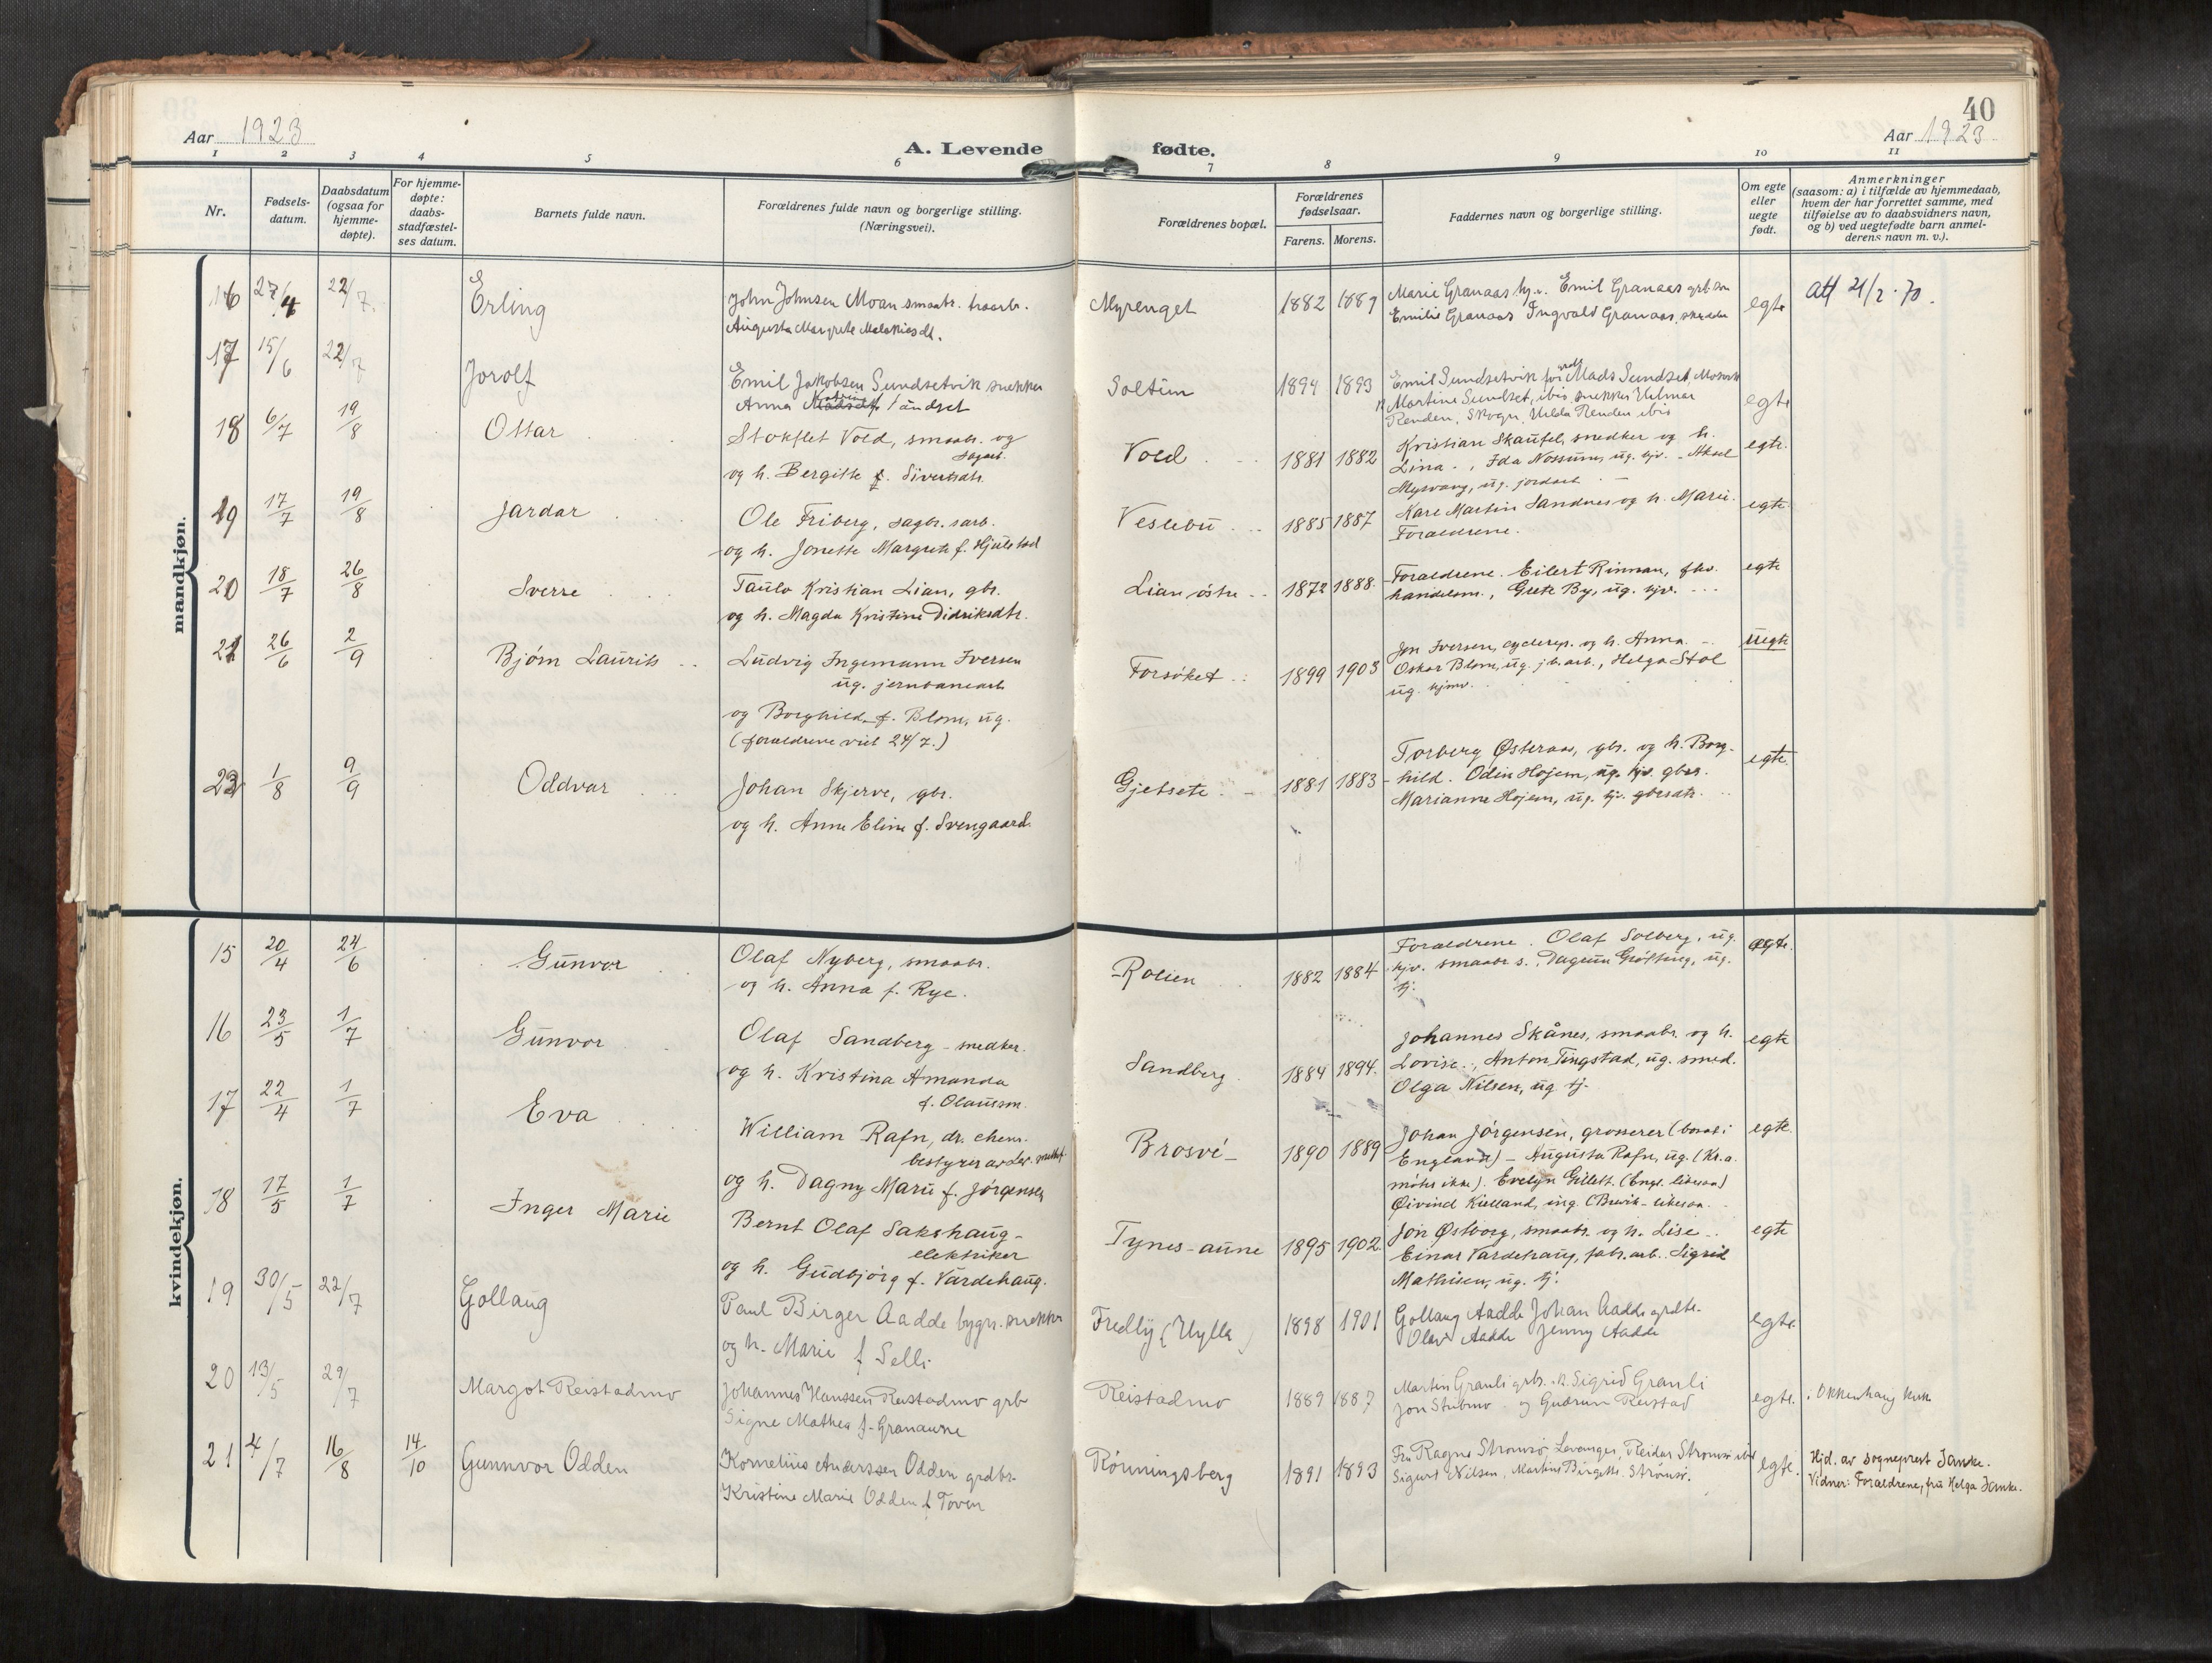 40
Aar 1923
Aar 1923
A. Levende fødte.
1 2 3 4 5 6 7 8 9 10 11
Nr.
Fødsels-
datum.
Daabsdatum
(ogsaa for
hjemme-
døpte).
For hjemme-
døpte:
daabs-
stadfæstel-
ses datum.
Barnets fulde navn.
Forældrenes fulde navn og borgerlige stilling.
(Næringsvei).
Forældrenes bopæl.
Forældrenes
fødselsaar.
Farens. Morens.
Faddernes navn og borgerlige stilling.
Om egte
eller
uegte
født.
Anmerkninger
(saasom: a) i tilfælde av hjemmedaab,
hvem der har forrettet samme, med
tilføielse av to daabsvidners navn,
og b) ved uegtefødte barn anmel-
derens navn m. v.).
mandkjøn.
16 27/4 22/7 Erling
John Johnsen Moan smaabr.
Augusta Margrete
Myrenget 1882 1889
Marie Granaas Emil Granaas
Emilie Granaas Ingvald Granaas
egte
att 21/2 · 70.
17 15/6 22/7 Jorolf
Emil Jakobsen Sundsetvik snekker
Anna Katrine
Soltun 1894 1893
Emil Sundsetvik Mads Sundset
Martine Sundset, ibid, snekker Hilmar
Renden, Skogn, Hilda Renden ibid
egte
18 6/7 19/8 Ottar
Stokflet Vold, smaabr. og
sagarb.
og h. Bergitte f. Sivertsdtr.
Vold 1881 1882
Kristian Skaufel, snedker og h.
Lina. , Ida Nossum, ug. hjv. - Aksel
Myrvang, ug. jordarb.
egte.
19 17/7 19/8 Jardar
Ole Friberg, sagbr. arb.
og h. Jonette Margrete f. Hjulstad
Veslebu 1885 1887
Karl Martin Sandnes og h. Marie.
Forældrene.
egte
20 18/7 26/8 Sverre
Paulo Kristian Lian, gbr.
og h. Magda Kristine Didriksdtr.
Lian østre 1872 1888.
Forældrene. Eilert Rinnan, fhv.
handelsm., Grete By, ug. hjv.
egte
21 26/6 2/9 Bjørn Laurits
Ludvig Ingemann Iversen
ug. jernbanearb
og Borghild f. Blom, ug.
(forældrene viet 24/7.)
Forsøket 1899 1903
Jon Iversen, cyclerep. og h. Anna
Oskar Blom, ug. jb. arb., Helga Stol
ug. hjmv.
uegte
22 1/8 9/9 Oddvar
Johan Skjerve, gbr.
og h. Anne Eline f. Svengaard.
Gjetsete 1881 1883
Torberg Østeraas, gbr. og h. Borg-
hild. Odin Højem, ug. hjv. gbrs.
Marianne Højem, ug. hjv. gbrsdtr.
egte.
kvindekjøn.
15 20/4 24/6 Gunvor
Olaf Nyberg, smaabr.
og h. Anna f. Rye.
Rolien 1882 1884
Forældrene. Olaf Solberg, ug.
hjv. smaabr s., Dagrun Grøtting, ug.
tj.
egte.
16 23/5 1/7 Gunvor
Olaf Sandberg - snedker.
og h. Kristina Amanda
f. Olausson.
Sandberg 1884 1894.
Johannes Skånes, smaabr. og h.
Lovise., Anton Tingstad, ug. smed.
Olga Nilsen, ug tj.
egte
17 22/4 1/7 Eva
William Rafn, dr. chem.
bestyrer av Lev.
og h. Dagny Marie f. Jørgensen
Brosvé 1890 1889
Johan Jørgensen, grosserer (bosat i
England) - Augusta Rafn, ug. (Kr.a.
møter ikke). Evelyn Gillett. (Engl. likesaa)
Øivind Kielland, ing. (Buvik - likesaa.
egte.
18 17/5 1/7 Inger Marie
Bernt Olaf Sakshaug -
elektriker
og h. Gudbjørg f. Vardehaug.
Tynes-aune 1895 1902.
Jon Østborg, smaabr. og h. Lise
Einar Vardehaug, fabr. arb. Sigrid
Mathisen, ug. tj.
egte
19 30/5 22/7 Gollaug
Paul Birger Aadde bygn. snekker
og h. Marie f Selli
Fredly (Hylla) 1898 1901
Gollaug Aadde Johan Aadde
Olav Aadde Jenny Aadde
egte.
20 13/5 29/7 Margot Reistadmo
Johannes Hanssen Reistadmo grb
Signe Mathea f. Granaune
Reistadmo 1889 1887
Martin Granli grbr. Sigrid Granli
Jon Stubmo og Gudrun Reistad
egte.
i Okkenhaug kirke
21 4/7 16/8 14/10 Gunnvor Odden
Kornelius Anderssen Odden grdbr.
Kristine Marie Odden f Toven
Rønningsberg 1891 1893
Fru Ragna Strømsø Levanger, Reidar Strømsø ibid
Sigurt Nilsen, Martine Birgitte Strømsø.
egte.
Hjd. av sogneprest Janke.
Vidner: Forældrene, fru Helga Janke.